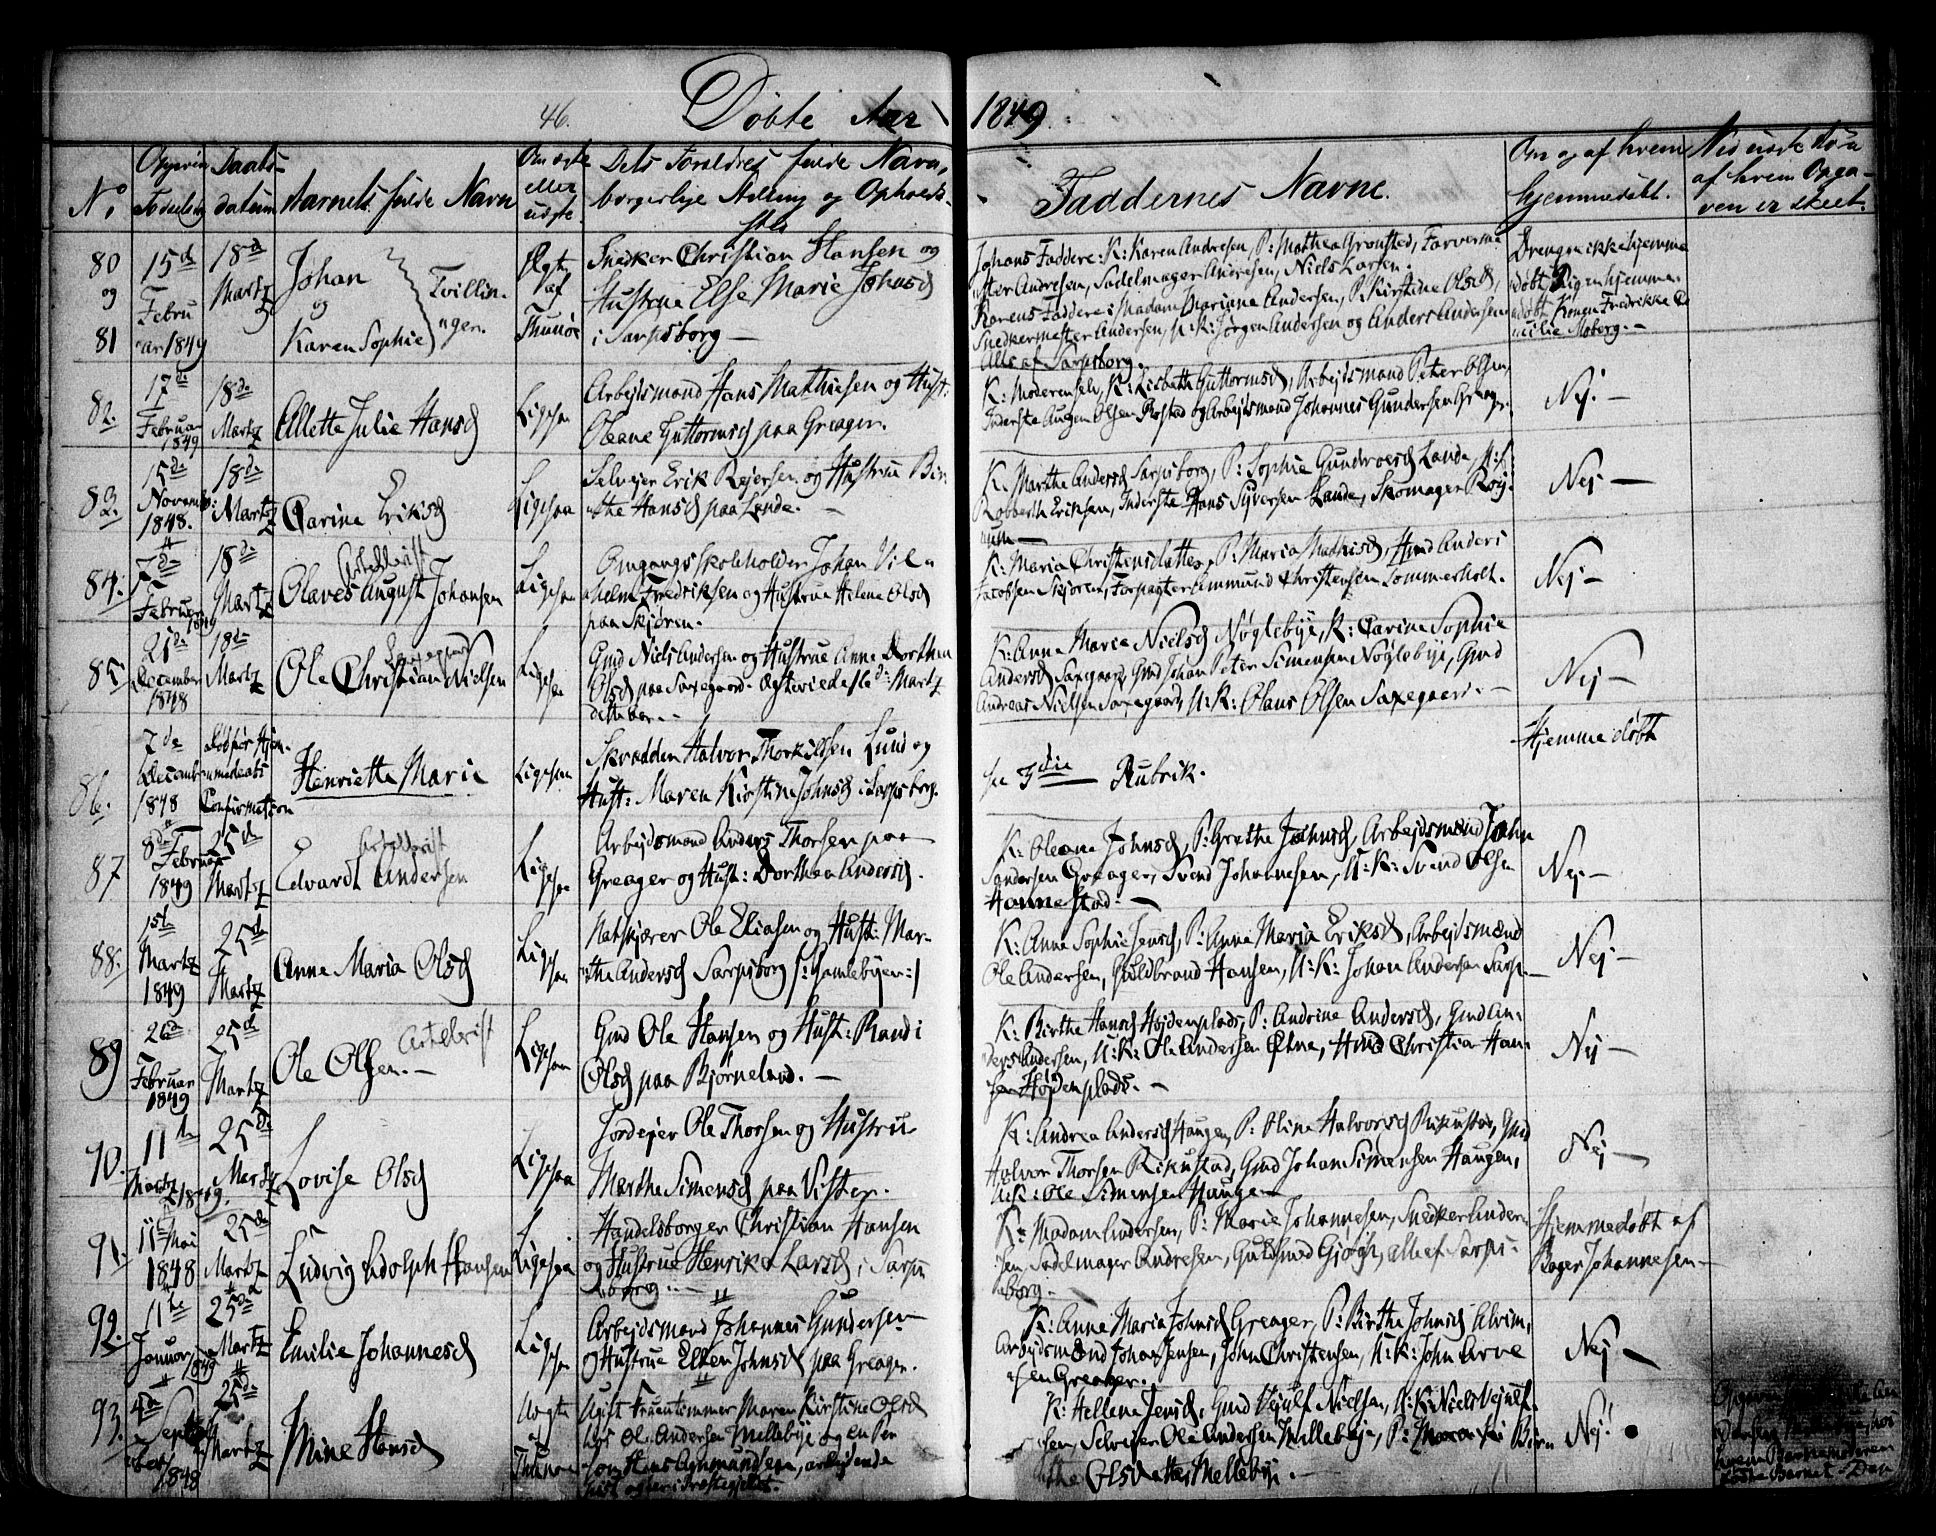 46.
Döbte Aar 1849.
No
Opgiven Födselsdag
Daabsdatum
Barnets fulde Navn
Om ægte eller uægte.
Dets Forældres fulde Navn, borgerlige Stilling og Opholdssted
Faddernes Navne.
Om og af hvem hjemmedöbt.
Ved uægte Börn af hvem Opgaven er skeet.
80 og 81
15d Februar 1849
18d Martz
Johan og Karen Sophie
Tvillinger.
Ægte af Thunöe
Snedker Christian Hansen og
Hustrue Else Marie Johnsd
i Sarpsborg —
Johans Faddere: K: Karen Andresen, P: Mathea Grönsted, Farverme
ster Andresen, Sadelmager Andresen, Niels Larsen.
Karens Faddere: Madam Mariane Andersen, P. Kirstine Olsd,
Snedkermester Andersen, U.K: Jørgen Andersen og Anders Andersen
Alle af Sarpsborg.
Drengen ikke hjemme
döbt, Pigen hjemme
döbt Konen Fredrikke Ce
cilie Moberg. —
82.
17de Februar 1849
18de Martz
Ellette Julie Hansd
Ligesaa
Arbejdsmand Hans Mathiesen og Hust:
Oleane Guttormsd paa Greager.
K: Moderen selv, K: Lisbeth Guttormsd, Arbejdsmand Peter Olsen,
Inderste Augen Olsen Rostad og Arbejdsmand Johannes Gundersen Greager.
Nej. —
83.
15de November 1848.
18de Martz
Carine Eriksd
Ligesaa
Selvejer Erik Rejersen og Hustrue Bir
the Hansd paa Lande. —
K. Marthe Andersd Sarpsborg, P: Sophie Gundroesd Lande, U:K:
Robberth Eriksen, Inderste Hans Syversen Lande, Skomager Röj
Nej —
84.
7de Februar 1849
18de Martz
Olaves August Johansen
Ligesaa
Omgangsskoleholder Johan Vil
helm Fredriksen og Hustrue Helene Olsd
paa Skjören.
K: Maria Christensdatter, P: Maria Mathisd, Hmd Anders
Jacobsen Skjören, Forpagter Ammund Christensen Sommerholt.
Nej —
85.
21de December 1848
18de Martz
Ole Christian Nielsen
Ligesaa
Gmd Niels Andersen og Hustrue Anne Dorthea
Olsd paa Saxegaard. Ægteviede 1ste Martz
dette aar. —
K: Anne Marie Nielsd Nöglebye, K: Carine Sophie
Andersd Saxegaard, Gmd Johan Peter Simensen Nöglebye, Gmd
Andreas Nielsen Saxegaard, U:K: Olaus Olsen Saxegaard. —
Nej —
86.
7de December 1848
see for Hjem
medaabs
Confirmation
Henriette Marie
Ligesaa
Skrædder Halvor Thorkildsen Lund og
Hust: Maren Kirstine Johnsd i Sarpsborg.
see 3die Rubrik.
Hjemmedöbt
87
8de Februar 1849
25de Martz
Edvardt Andersen
Ligesaa
Arbejdsmand Anders Thorsen paa
Greager og Hust: Dorthea Andersd.
K: Oleane Johnsd, P: Grethe Johnsd, Arbejdsmand John
Sandersen Greager, Svend Johannesen, U:K: Svend Olsen
Hannestad. —
Nej. —
88.
1ste Martz 1849
25de Martz
Anne Maria Olsd
Ligesaa
Natskjærer Ole Eliasen og Hust: Mar-
the Andersd Sarpsborg /: Gamlebyen :/
K: Anne Sophie Jensd, P: Anne Maria Eriksd, Arbejdsmænd
Ole Andersen, Guldbrand Hansen, U:K: Johan Andersen Sarp.
Nej —
89
26de Februar 1849
25de Martz
Ole Olsen. —
Artebrist
Ligesaa
Gmd Ole Hansen og Hust: Randi
Olsd paa Björneland. —
K: Birthe Hansd Höjdenplads, P: Andrine Andersd, Gmd An-
ders Andersen, U:K: Ole Andersen Ethne, Hmd Christian Han-
sen Höjdenplads. —
Nej —
90.
11te Martz 1849.
25de Martz
Lovise Olsd
Ligesaa
Jordejer Ole Thorsen og Hustru
Marthe Simensd paa Vister.
K: Andrea Andersd Haugen, P: Oline Halvorsd Rikustad, Gmd
Halvor Thorsen Rikustad, Gmd Johan Simensen Haugen,
U:K: Ole Simensen Haugen
Nej —
91.
11te Mai 1848
25de Martz
Ludvig Adolph Hansen
Ligesaa
Handelsborger Christian Hansen
og Hustrue Henrika Larsd, i Sarps
borg. —
K: Madam Andersen, P: Marie Johannesen, Snedker Ander
sen, Sadelmager Andresen, Guldsmed Gjögh, alle af Sarps-
borg. —
Hjemmedöbt af
Bager Johannesen —
92.
11te Januar 1849
25de Martz
Emilie Johannesd
Ligesaa
Arbejdsmand Johannes Gundersen
og Hustrue Ellen Johnsd paa Greager.
K: Anne Maria Johnsd Greager, P: Birthe Johnsd Alvim,
Arbejdsmænd Johan Jensen, John Christensen, U:K: John Arve
sen Greager.
Nej —
93.
4de September 1848
25de Martz
Mine Hansd
Uægte af Thunoe
Ugift Fruentimmer Maren Kirstine Olsd
hos Ole Andersen Mellebye og en Per
son Hans Ammundsen, arbejdende
K: Hellene Jensd, Gmd Vejulf Nielsen, U:K: Niels Vejulf
sen, Selvejer Ole Andersen Mellebye, P: Maren Bir
the Olsdatter Mellebye. —
Nej!
hvem Barnemoderen
födte Barnet